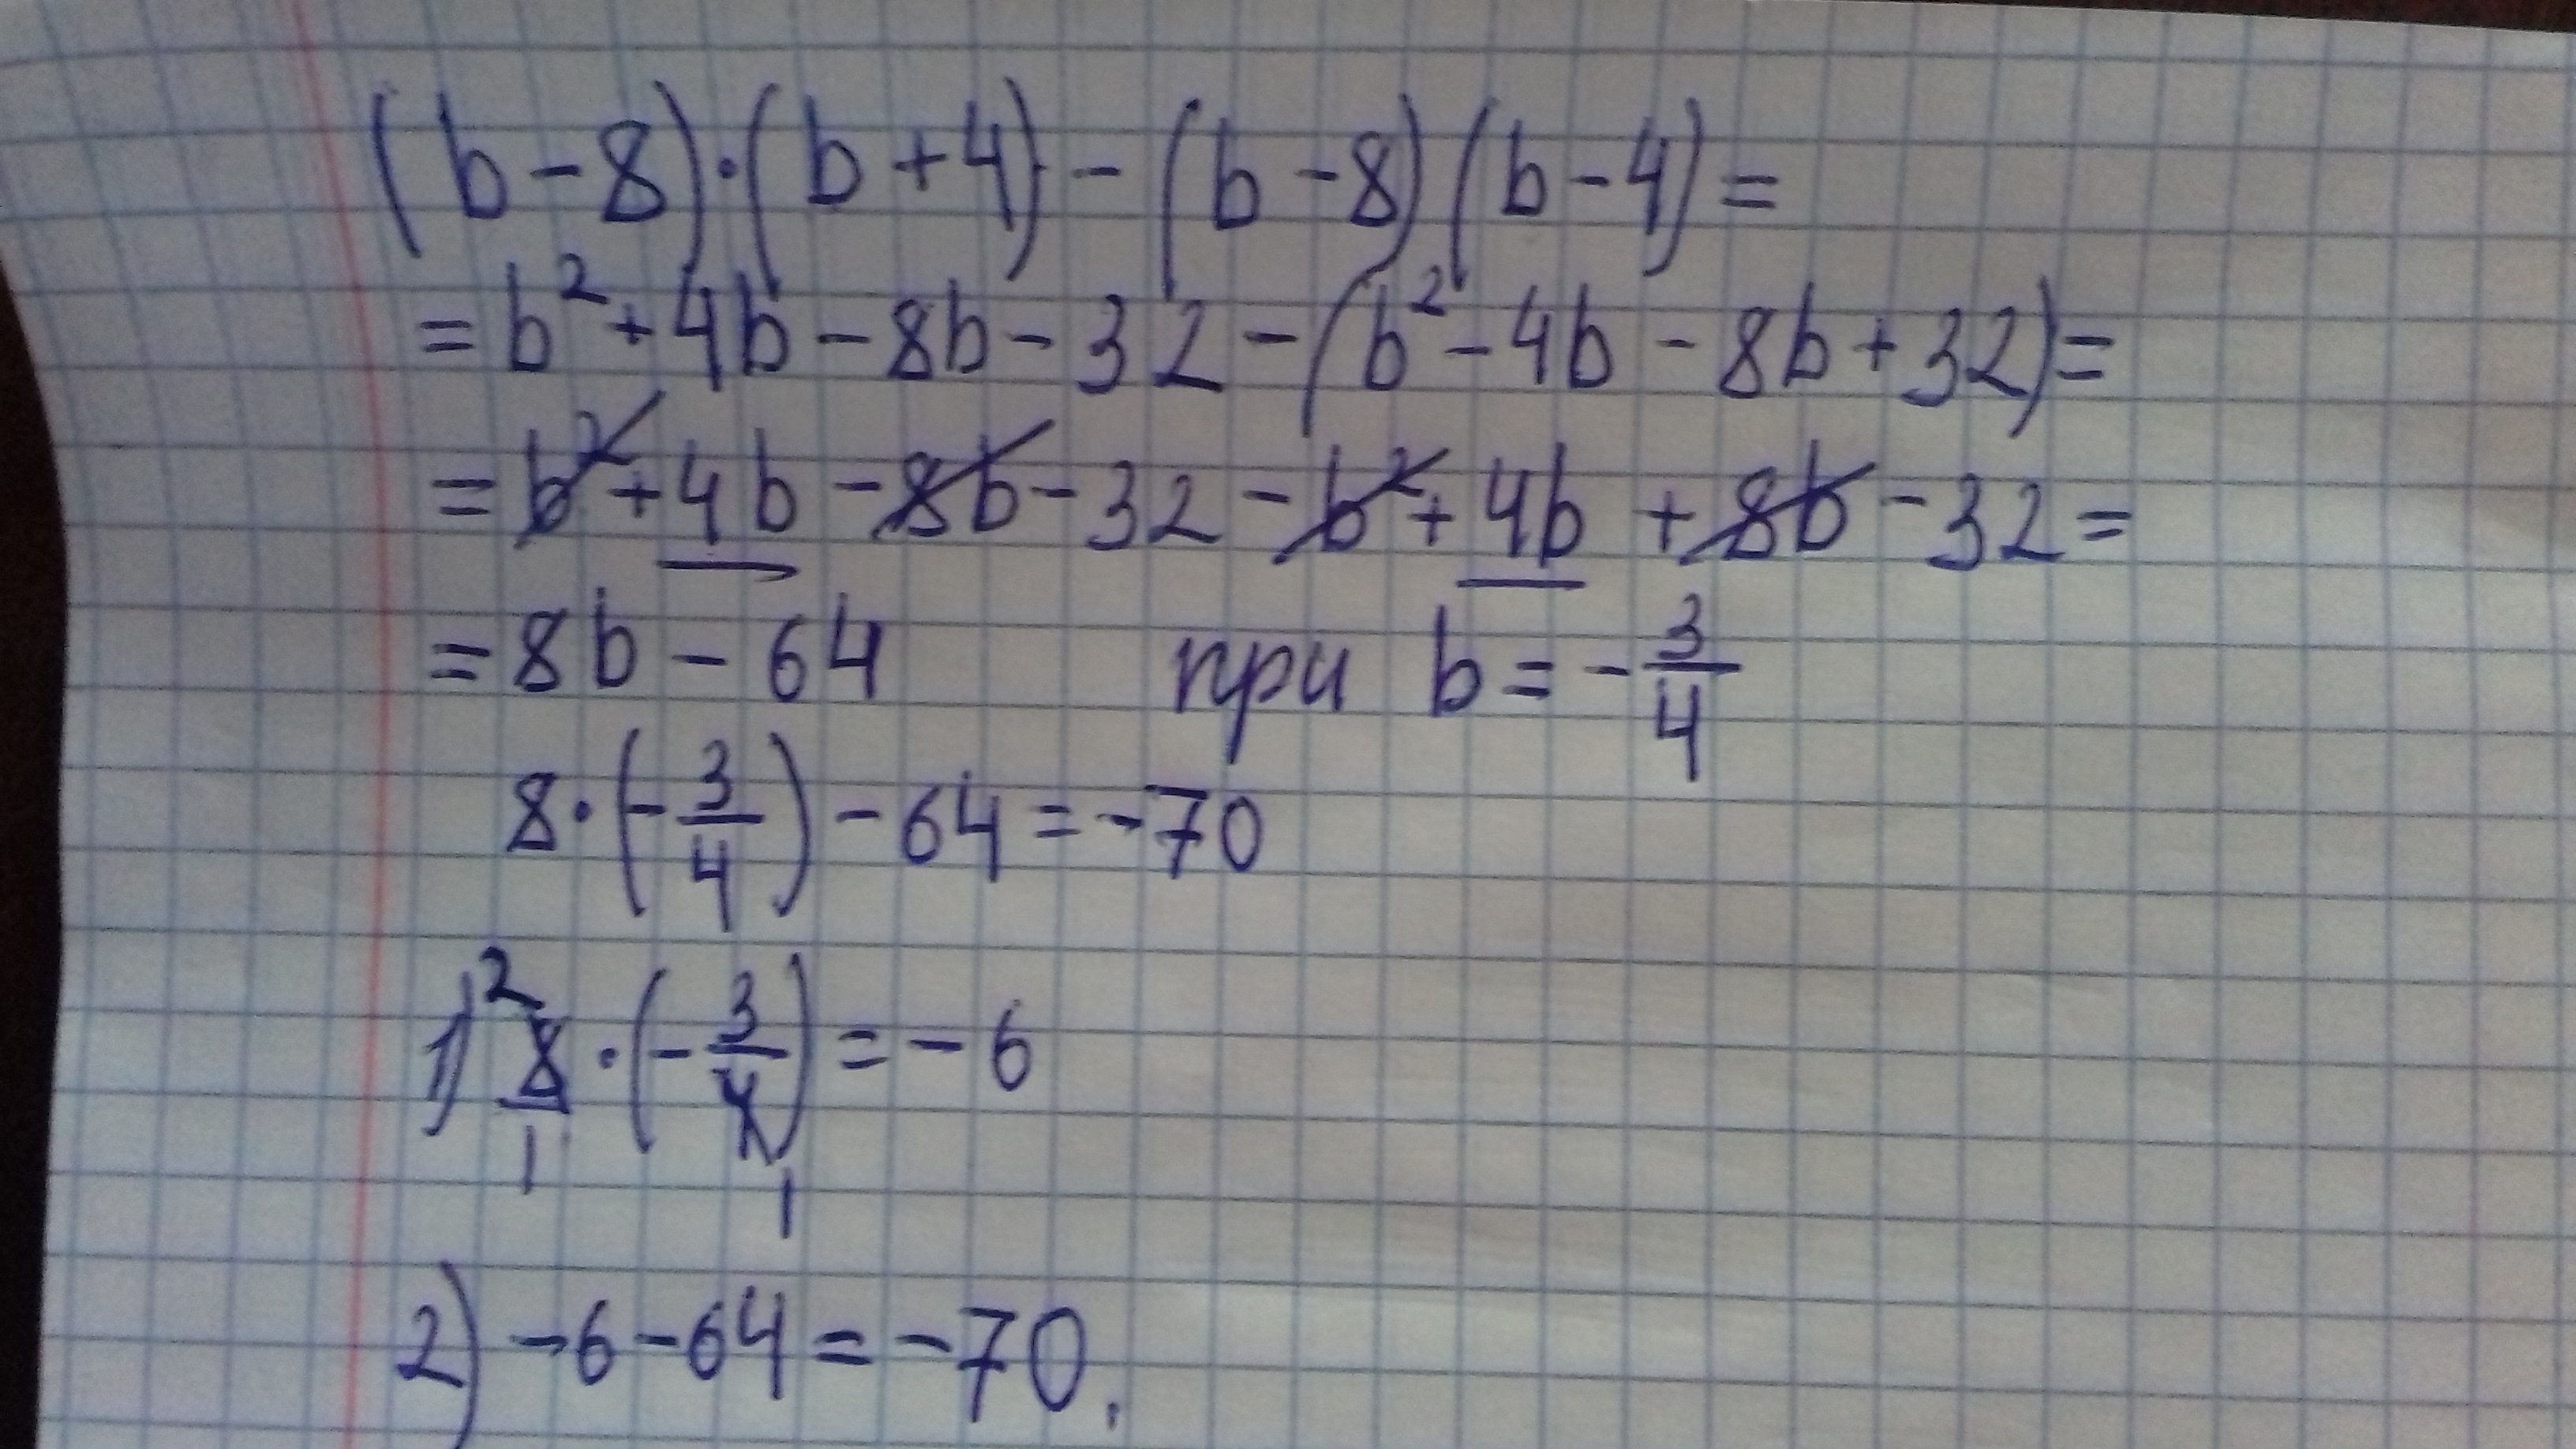 (b-8)·(b+4)-(b-8)(b-4)=
=b²+4b-8b-32-(b²-4b-8b+32)=
=b²+4b-8b-32-b²+4b+8b-32=
=8b-64 при b=-3/4
8·(-3/4)-64=-70
1) 2 8/1·(-3/4)=-6
1
2) -6-64=-70.